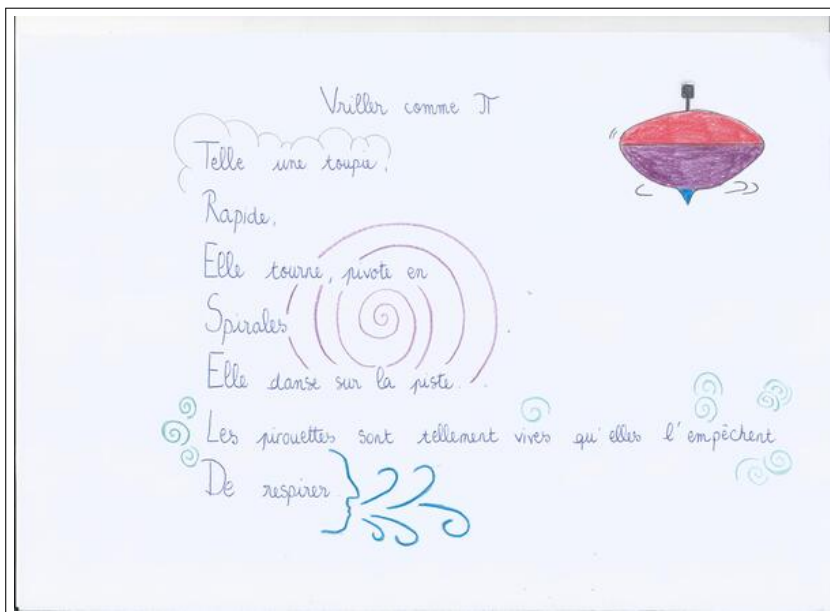 Vriller comme π
Telle une toupie,
Rapide,
Elle tourne, pivote en
Spirales
Elle danse sur la piste...
Les pirouettes sont tellement vives qu'elles l'empêchent
De respirer